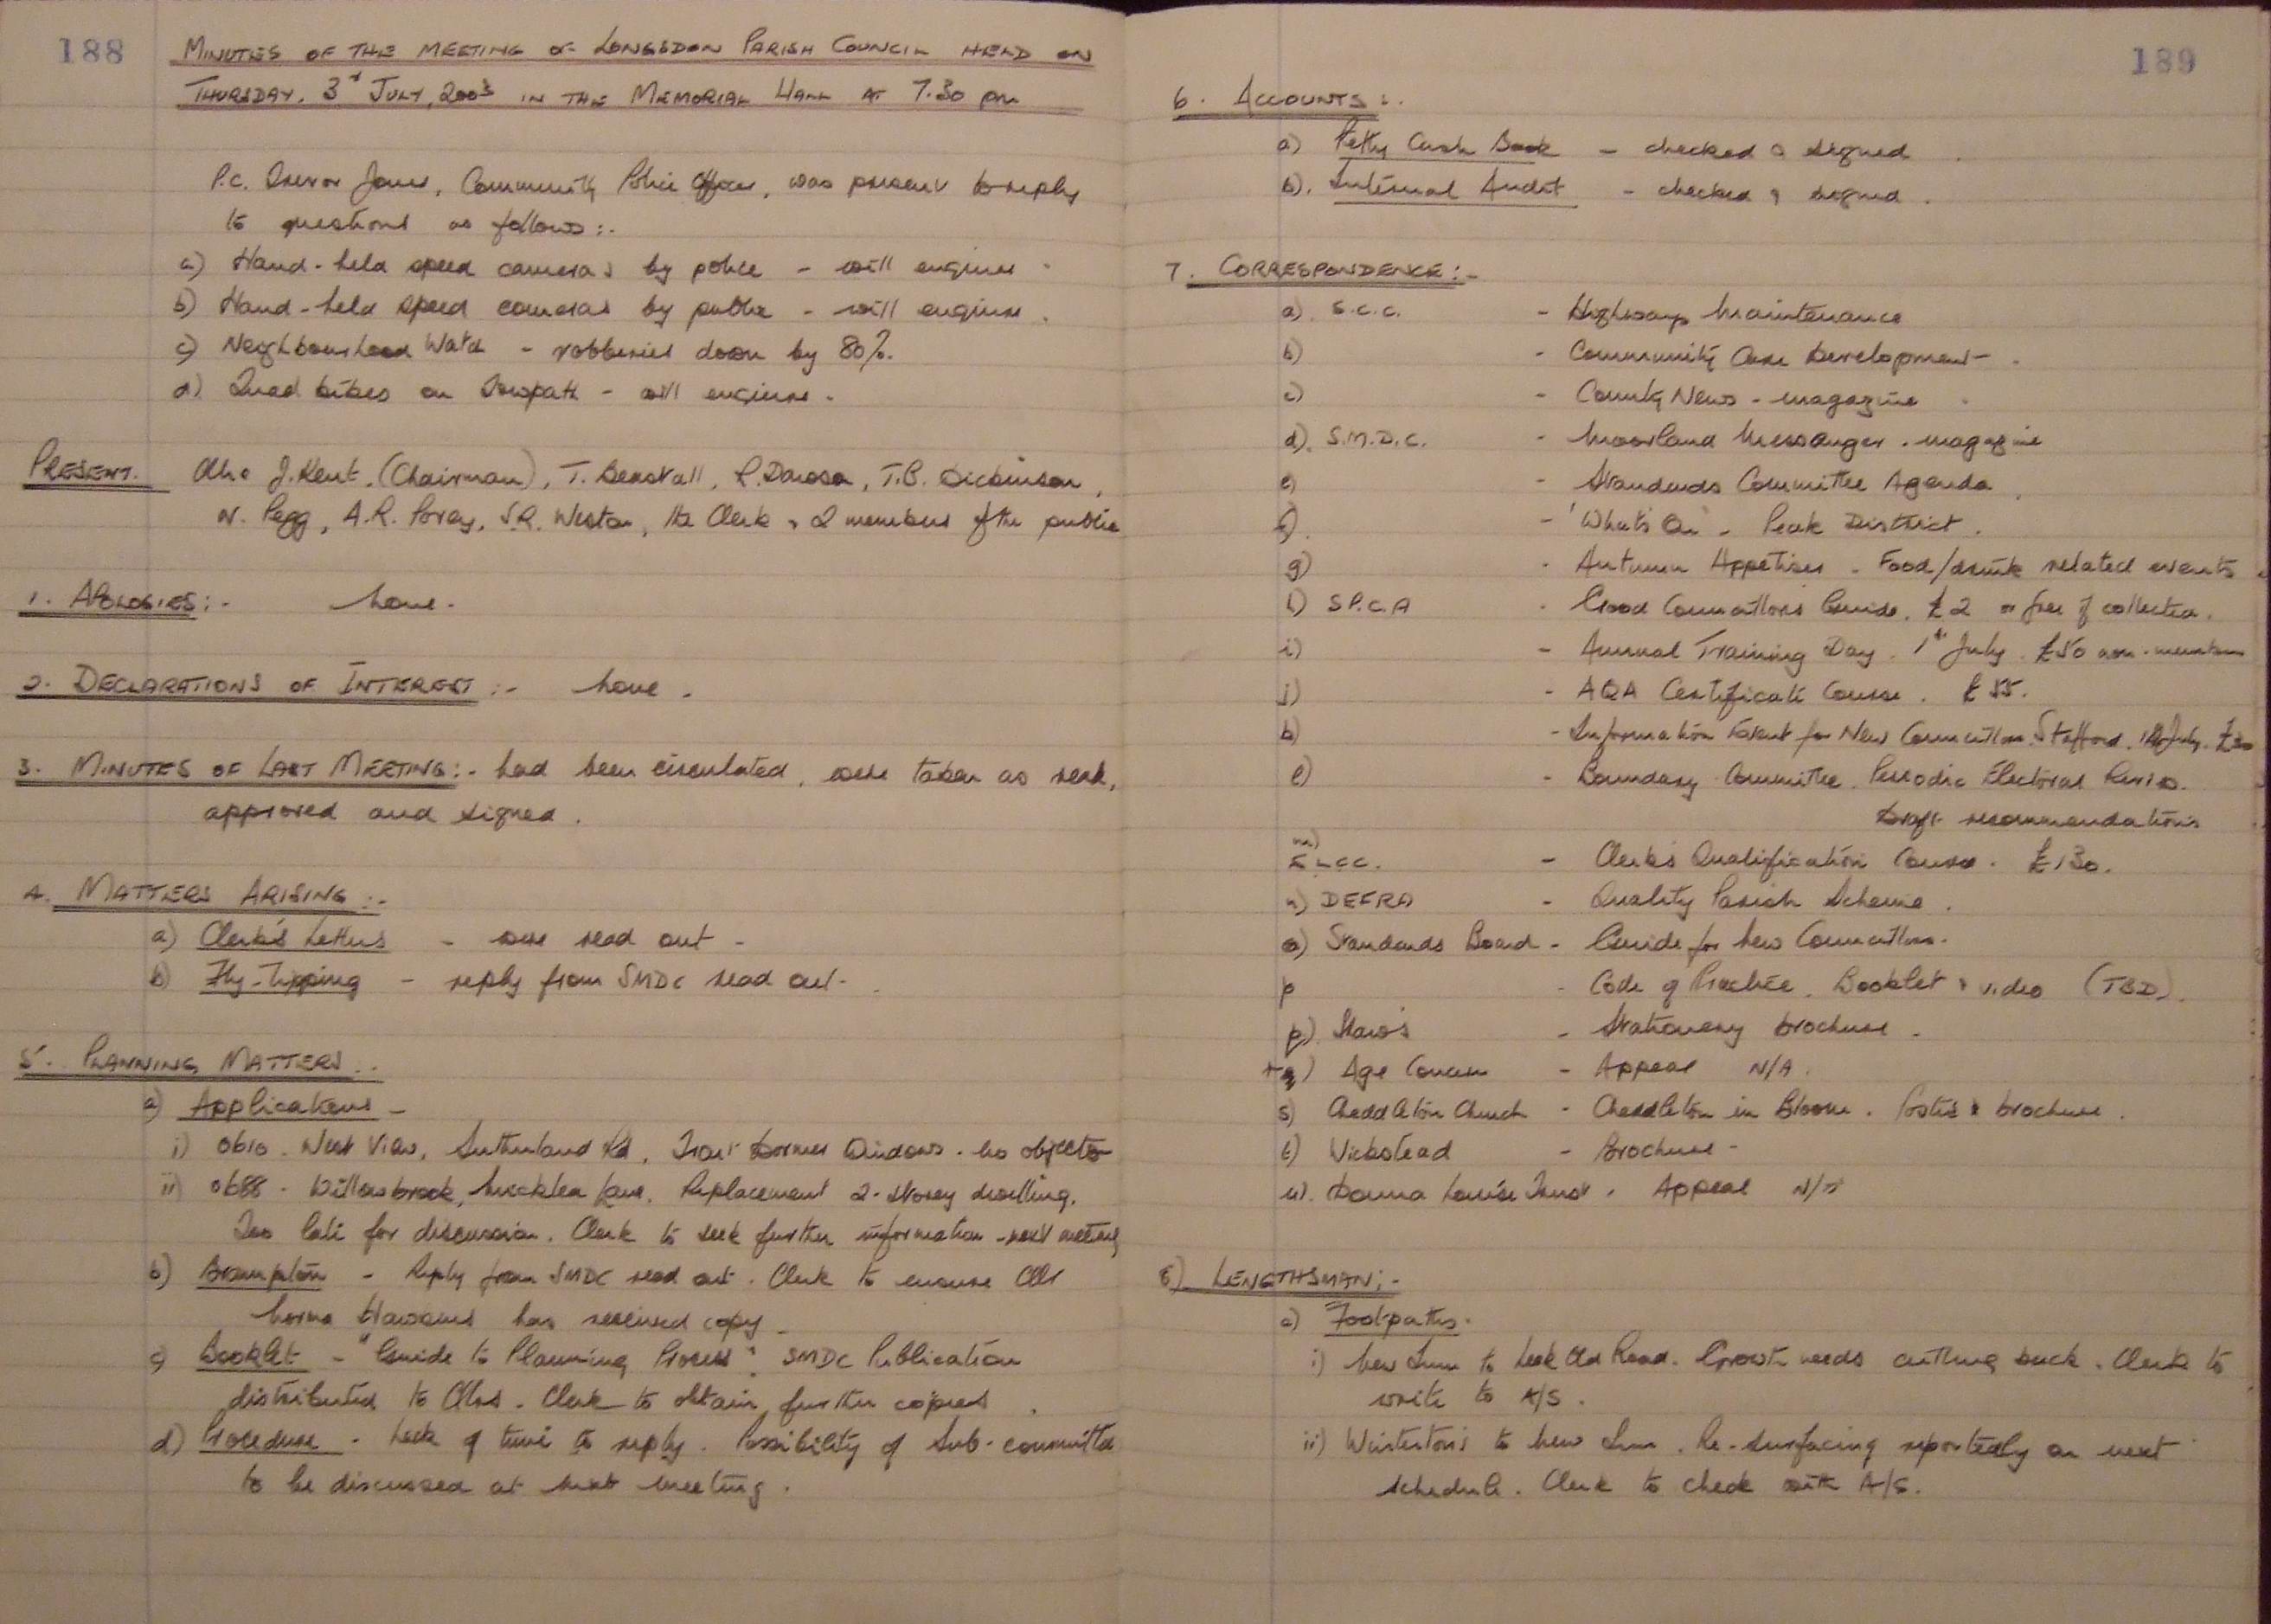 188
MINUTES OF THE MEETING OF LONGSDON PARISH COUNCIL HELD ON
THURSDAY, 3rd JULY, 2003 IN THE MEMORIAL HALL AT 7.30 pm
P.C. Trevor Jones, Community Police Officer, was present to reply
to questions as follows:-
a) Hand-held speed cameras by police - will enquire.
b) Hand-held speed cameras by public - will enquire.
c) Neighbourhood Watch - robberies down by 80%.
d) Quad bikes on Towpath - will enquire.
PRESENT. Cllrs J. Kent, (Chairman), T. Beardall, P. Dawson, T.B. Dickinson,
N. Pegg, A.R. Povey, S.R. Weston, the Clerk & 2 members of the public
1. APOLOGIES:- None.
2. DECLARATIONS OF INTEREST:- None.
3. MINUTES OF LAST MEETING:- had been circulated, were taken as read,
approved and signed.
4. MATTERS ARISING:-
a) Clerk's Letters - were read out -
b) Fly-Tipping - reply from SMDC read out.
5. PLANNING MATTERS:-
a) Applications -
i) 0610. West View, Sutherland Rd, Front Dormer Windows. No objection
ii) 0688 - Willowbrook, Micklea Lane. Replacement 2-storey dwelling.
Too late for discussion. Clerk to seek further information - next meeting
b) Brampton - Reply from SMDC read out. Clerk to ensure Cllr
Norma Hawkins has received copy -
c) Booklet - "Guide to Planning Process". SMDC Publication
distributed to Cllrs. Clerk to obtain further copies.
d) Procedure - Lack of time to reply. Possibility of Sub-committee
to be discussed at next meeting.
189
6. ACCOUNTS:-
a) Petty Cash Book - checked & signed
b). Internal Audit - checked & signed.
7. CORRESPONDENCE:-
a). S.C.C. - Highways Maintenance
b) - Community Care Development -
c) - County News - magazine
d). S.M.D.C. - Moorland Messenger. magazine
e) - Standards Committee Agenda
f). - 'What's On' - Peak District.
g) - Autumn Appetiser - Food/drink related events
h) SPCA - Good Councillors Guide. £2 or free if collected.
i) - Annual Training Day. 1st July. £50 non-members
j) - AQA Certificate Course. £55.
k) - Information Event for New Councillors. Stafford. July. £30
l) - Boundary Committee. Periodic Electoral Review.
Draft recommendations
m) SLCC. - Clerk's Qualification Course. £130.
n) DEFRA - Quality Parish Scheme.
o) Standards Board - Guide for New Councillors.
p - Code of Practice. Booklet & video (TBD).
p) Shaw's - Stationery brochure.
q) Age Concern - Appeal N/A.
s) Cheddleton Church - Cheddleton in Bloom. Poster & brochure.
t) Wicksteed - Brochure -
u). Donna Louise Trust. Appeal N/A
8) LENGTHSMAN:-
a) Footpaths.
i) New Inn to Leek Old Road. Growth needs cutting back. Clerk to
write to A/S.
ii) Winterton's to New Inn. Re-surfacing reportedly on next
schedule. Clerk to check with A/S.